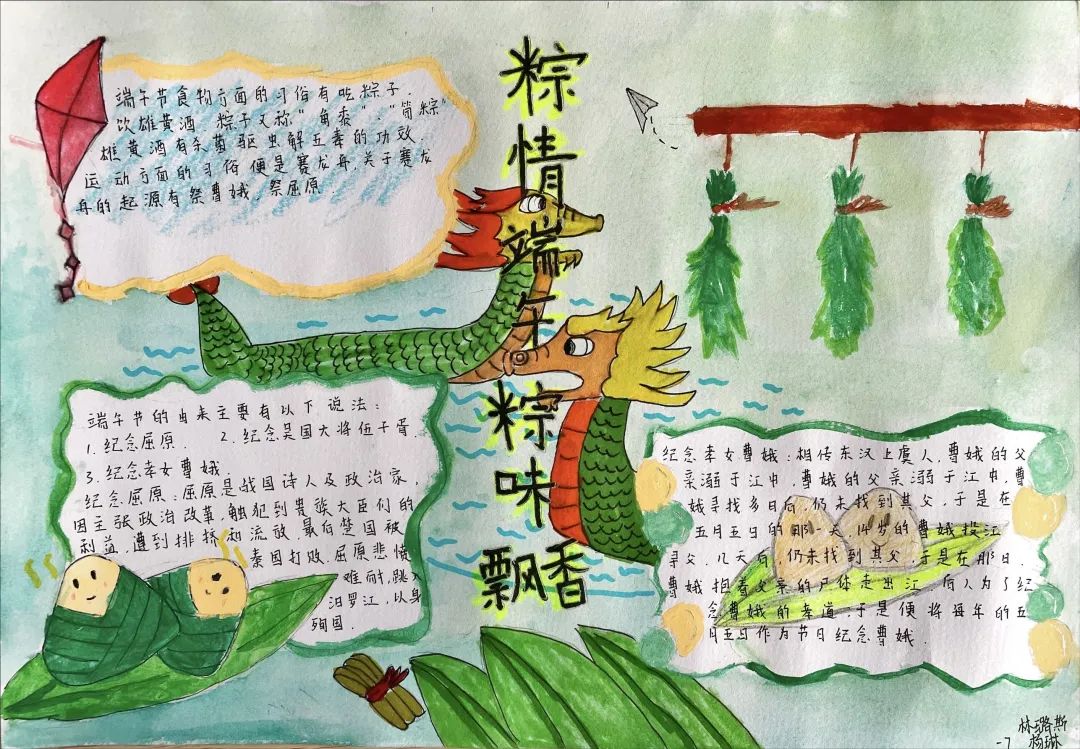 粽情端午粽味飘香
端午节食物方面的习俗有吃粽子.
饮雄黄酒 粽子又称"角黍"."筒粽"
雄黄酒有杀菌驱虫解五毒的功效.
运动方面的习俗便是赛龙舟,关于赛龙
舟的起源有祭曹娥,祭屈原
端午节的由来主要有以下说法:
1.纪念屈原. 2.纪念吴国大将伍子胥.
3.纪念孝女曹娥.
纪念屈原:屈原是战国诗人及政治家,
因主张政治改革,触犯到贵族大臣们的
利益,遭到排挤和流放,最后楚国被
秦国打败,屈原悲愤
难耐,跳入
汨罗江,以身
殉国.
纪念孝女曹娥:相传东汉上虞人,曹娥的父
亲溺于江中,曹娥的父亲溺于江中,曹
娥寻找多日后,仍未找到其父,于是在
五月五日的那一天 14岁的曹娥投江
寻父.几天后,仍未找到其父,于是在那日.
曹娥抱着父亲的尸体走出江,后人为了纪
念曹娥的孝道,于是便将每年的五
月五日作为节日纪念曹娥.
林璐斯
-7 杨琳